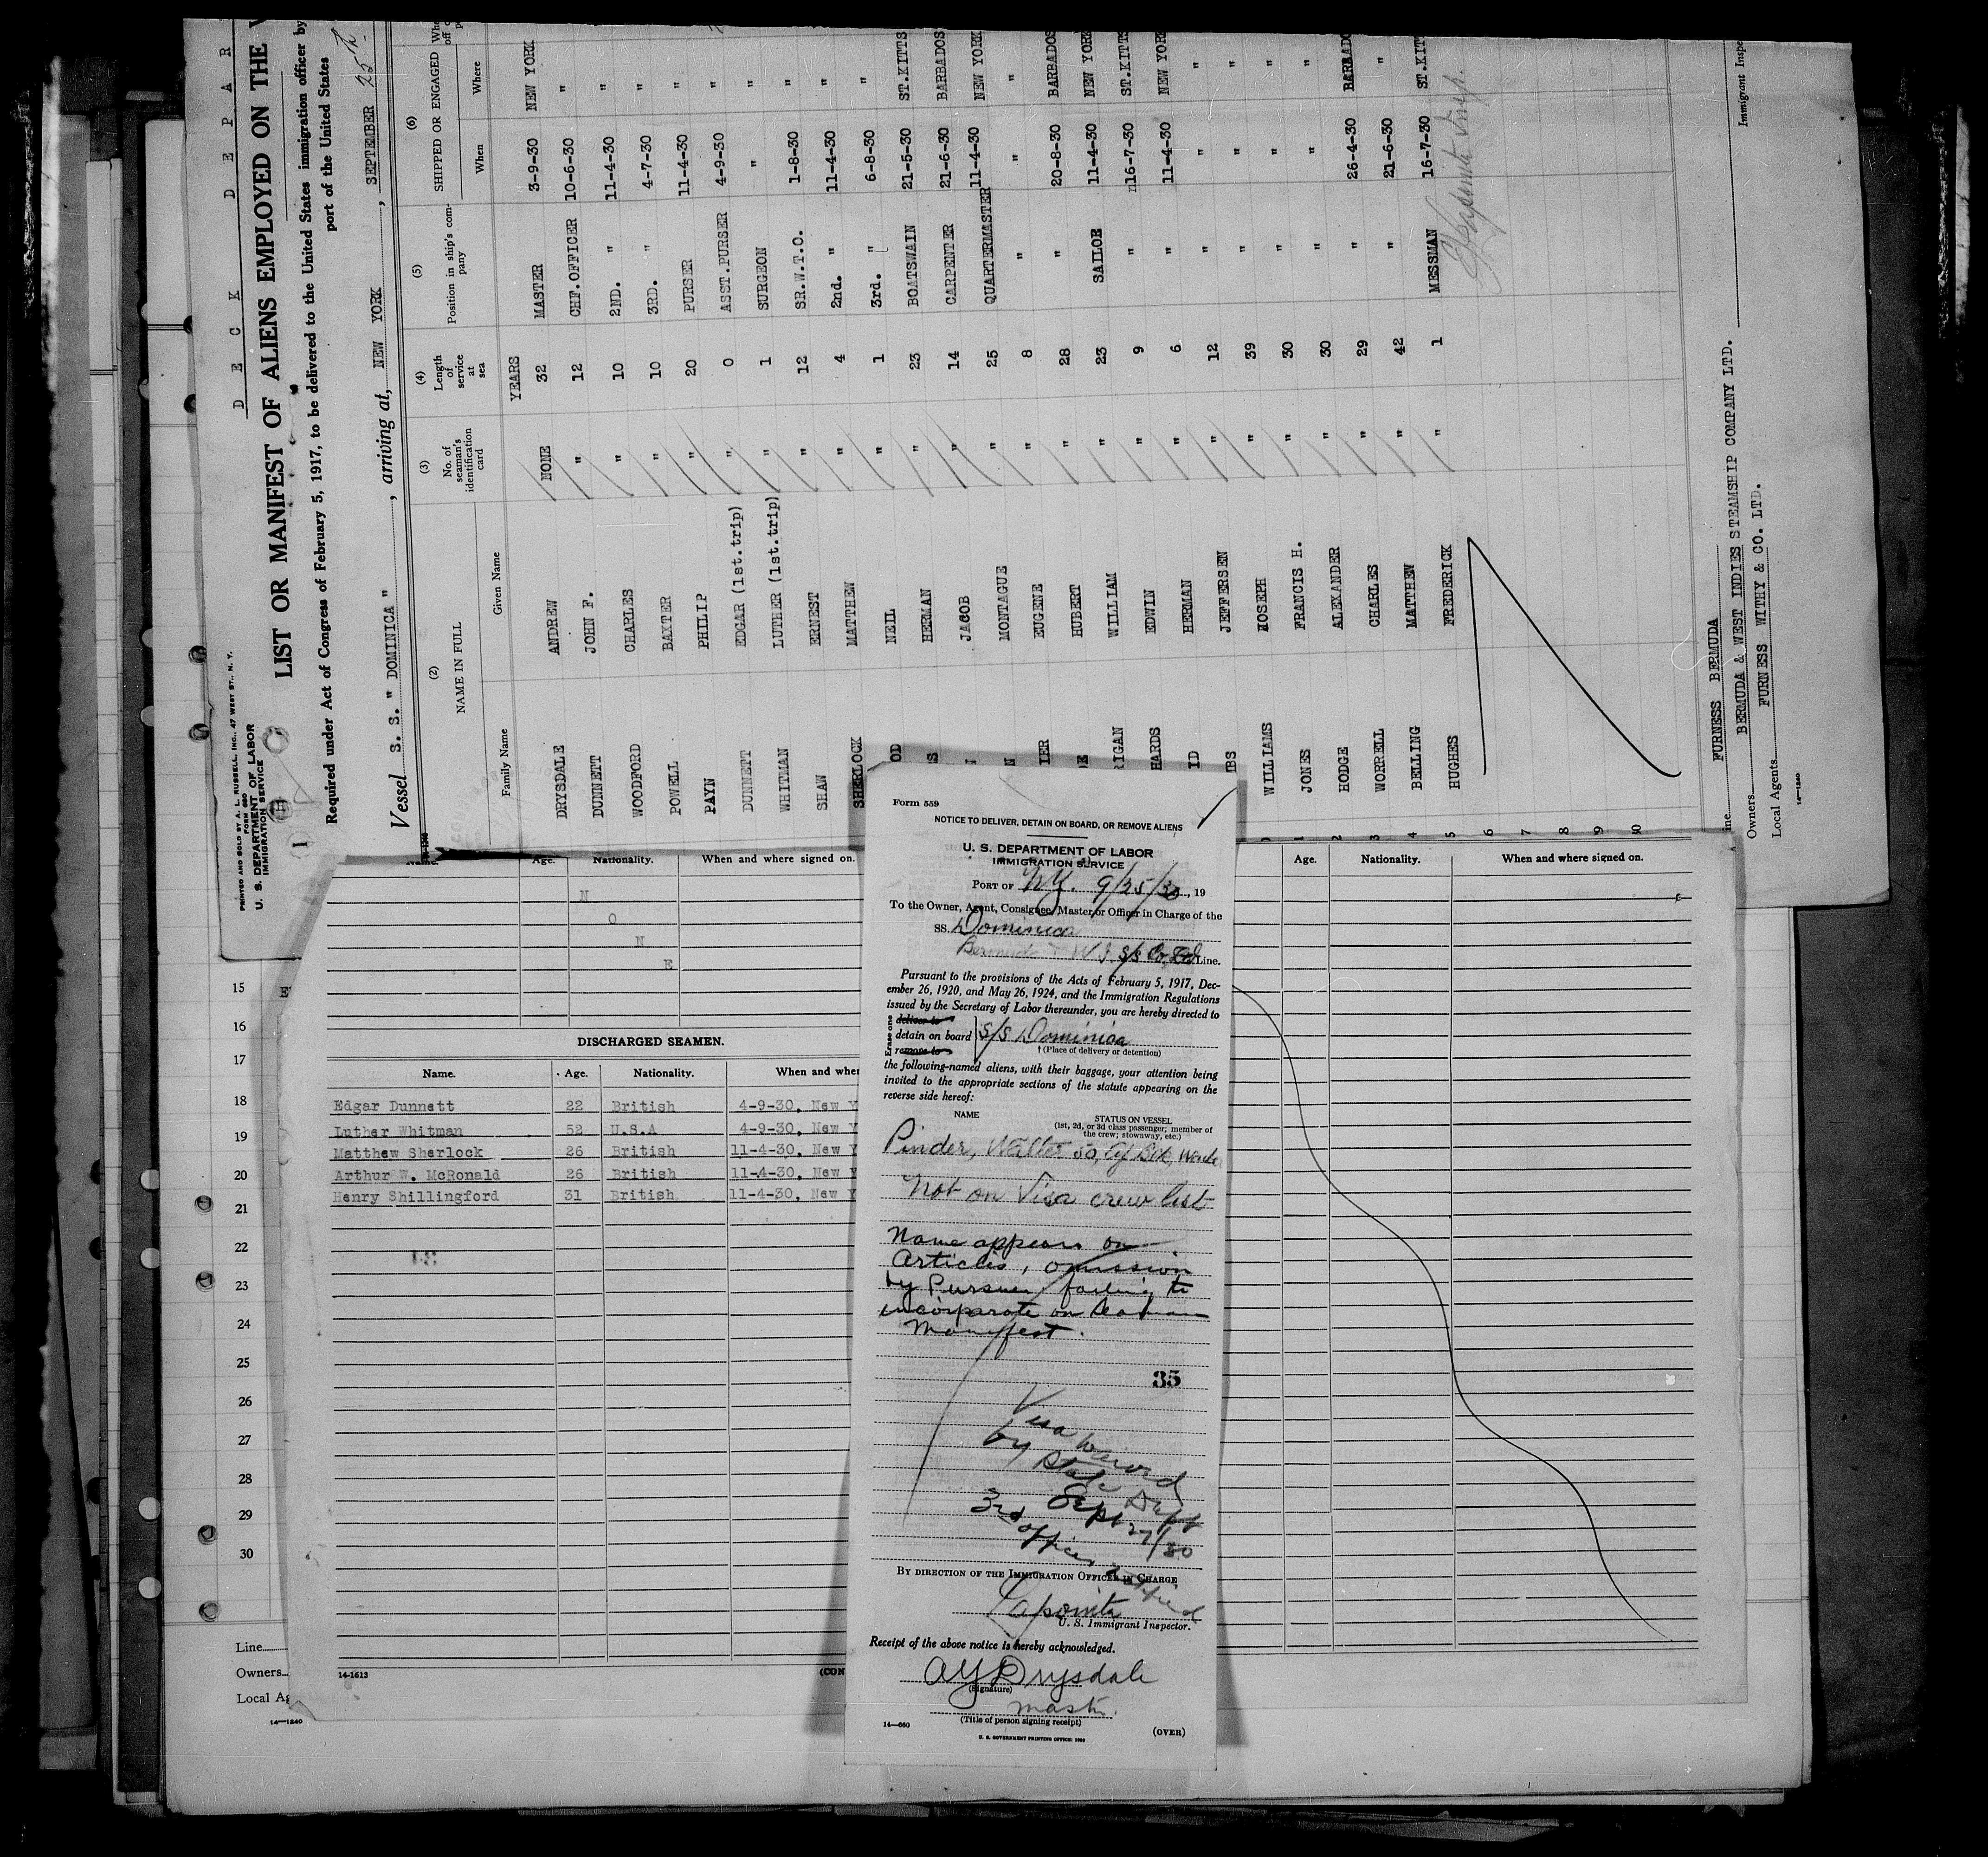 D E C K   D E P A R
PRINTED AND SOLD BY A. L. RUSSELL, INC., 47 WEST ST., N. Y.
FORM 680
U. S. DEPARTMENT OF LABOR
IMMIGRATION SERVICE
1
LIST OR MANIFEST OF ALIENS EMPLOYED ON THE V
Required under Act of Congress of February 5, 1917, to be delivered to the United States immigration officer by
port of the United States
Vessel S. S. " DOMINICA " , arriving at, NEW YORK , SEPTEMBER 25th
(2) NAME IN FULL (3) No. of seaman's identification card (4) Length of service at sea (5) Position in ship's company (6) SHIPPED OR ENGAGED
Family Name Given Name When Where
YEARS
DRYSDALE ANDREW NONE 32 MASTER 3-9-30 NEW YORK
DUNNETT JOHN F. " 12 CHF.OFFICER 10-6-30 "
WOODFORD CHARLES " 10 2ND. " 11-4-30 "
POWELL BAXTER " 10 3RD. " 4-7-30 "
PAYN PHILIP " 20 PURSER 11-4-30 "
DUNNETT EDGAR (1st.trip) " 0 ASST.PURSER 4-9-30 "
WHITMAN LUTHER (1st.trip) " 1 SURGEON " "
SHAW ERNEST " 12 SR.W.T.O. 1-8-30 "
SHERLOCK MATTHEW " 4 2nd. " 11-4-30 "
OD NEIL " 1 3rd. " 6-8-30 "
S HERMAN " 23 BOATSWAIN 21-5-30 ST.KITTS
JACOB " 14 CARPENTER 21-6-30 BARBADOS
N MONTAGUE " 25 QUARTERMASTER 11-4-30 NEW YORK
IER EUGENE " 8 " " "
HUBERT " 28 " 20-8-30 BARBADOS
RIGAN WILLIAM " 23 SAILOR 11-4-30 NEW YORK
HARDS EDWIN " 9 " 16-7-30 ST.KITTS
ID HERMAN " 6 " 11-4-30 NEW YORK
BS JEFFERSEN " 12 " " "
WILLIAMS JOSEPH " 39 " " "
1 JONES FRANCIS H. " 30 " " "
2 HODGE ALEXANDER " 30 " " "
3 WORRELL CHARLES " 29 " 26-4-30 BARBADO
4 BELLING MATTHEW " 42 " 21-6-30 "
5 HUGHES FREDERICK " 1 MESSMAN 16-7-30 ST.KIT
6
7
8
9
10
Lapointe Insp.
ine FURNESS BERMUDA
Owners BERMUDA & WEST INDIES STEAMSHIP COMPANY LTD.
Local Agents FURNESS WITHY & CO. LTD.
Immigrant Inspe
14-1240
Age. Nationality. When and where signed on.
N
O
N
E
DISCHARGED SEAMEN.
Name. Age. Nationality. When and whe
Edgar Dunnett 22 British 4-9-30, New Y
Luther Whitman 52 U.S.A 4-9-30, New Y
Matthew Sherlock 26 British 11-4-30, New Y
Arthur W. McRonald 26 British 11-4-30, New Y
Henry Shillingford 31 British 11-4-30, New Y
14-1613
(CON
15
16
17
18
19
20
21
22
23
24
25
26
27
28
29
30
Line
Owners
Local Ag
14—1240
Age. Nationality. When and where signed on.
Form 559
NOTICE TO DELIVER, DETAIN ON BOARD, OR REMOVE ALIENS
U. S. DEPARTMENT OF LABOR
IMMIGRATION SERVICE
PORT OF N.Y. 9/25/30, 19
To the Owner, Agent, Consignee, Master, or Officer in Charge of the
SS. Dominica
Bermuda & W.I. S/S Co, Ltd Line.
Pursuant to the provisions of the Acts of February 5, 1917, Dec-
ember 26, 1920, and May 26, 1924, and the Immigration Regulations
issued by the Secretary of Labor thereunder, you are hereby directed to
Erase one
deliver to
detain on board S/S Dominica
remove to † (Place of delivery or detention)
the following-named aliens, with their baggage, your attention being
invited to the appropriate sections of the statute appearing on the
reverse side hereof:
NAME STATUS ON VESSEL
(1st, 2d, or 3d class passenger; member of
the crew; stowaway, etc.)
Pinder, Walter 50,
Not on Visa crew list
Name appears on
Articles, omission
by Purser failing to
incorporate on
Manifest.
35
Visa waived
by State Dept
Sept 27/30
3rd officer notified
BY DIRECTION OF THE IMMIGRATION OFFICER IN CHARGE
Lapointe
U. S. Immigrant Inspector.
Receipt of the above notice is hereby acknowledged.
A Y Drysdale
(Signature)
Master.
(Title of person signing receipt)
14—660
(OVER)
U. S. GOVERNMENT PRINTING OFFICE: 1930